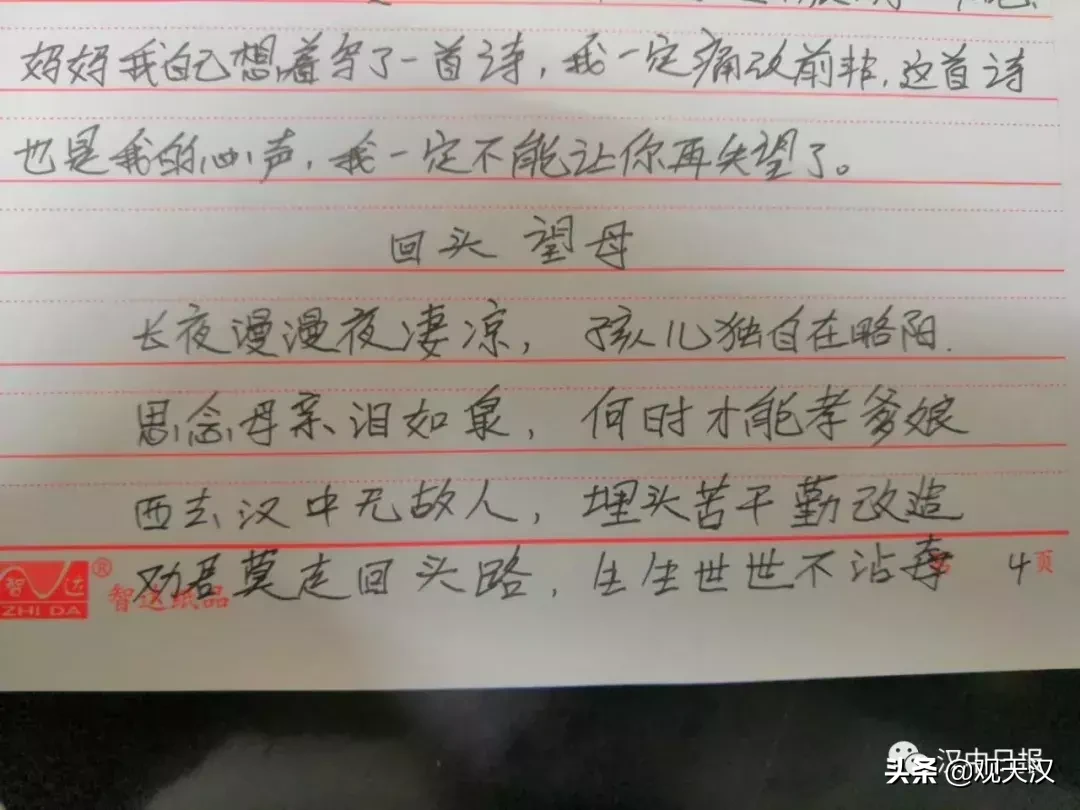 妈妈我自己想着写了一首诗，我一定痛改前非，这首诗
也是我的心声，我一定不能让你再失望了。
回头望母
长夜漫漫夜凄凉，孩儿独自在略阳.
思念母亲泪如泉，何时才能孝爹娘
西去汉中无故人，埋头苦干勤改造
劝君莫走回头路，生生世世不沾毒
4页
智达
ZHI DA
®
智达纸品
汉中日报
头条@观天汉